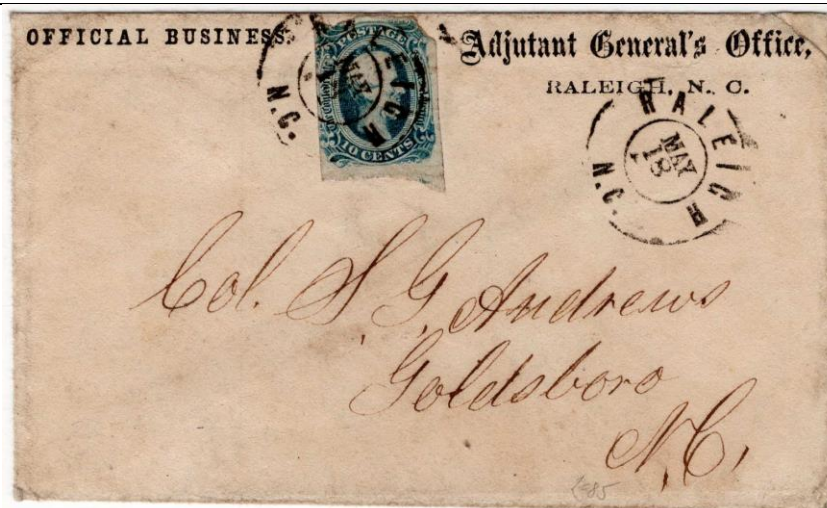 OFFICIAL BUSINESS.
Adjutant General's Office,
RALEIGH, N. C.
POSTAGE
10 CENTS
RALEIGH
N.C.
MAY
RALEIGH
N.C.
MAY
18
Col. S G, Andrews
Goldsboro
N.C,